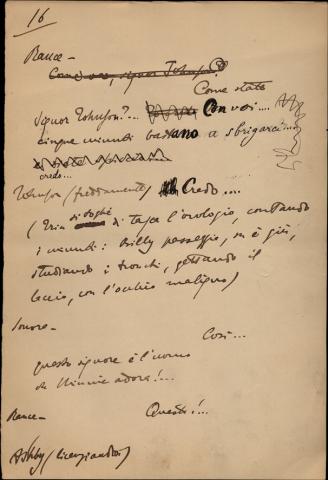 16
Rance –
Come va, signor Johnson?
Come state
signor Johnson?... Con voi....
cinque minuti bastano a sbrigarci....
credo...
Johnson (freddamente) Credo....
(Trin di tasca l'orologio, contando
i minuti: Billy passeggia, su e giù,
studiando i tronchi, gettando il
laccio, con l'occhio maligno)
Sonora –
Così...
questo signore è l'uomo
che Minnie adora!...
Rance –
Questi!...
Ashby (licenziandosi)